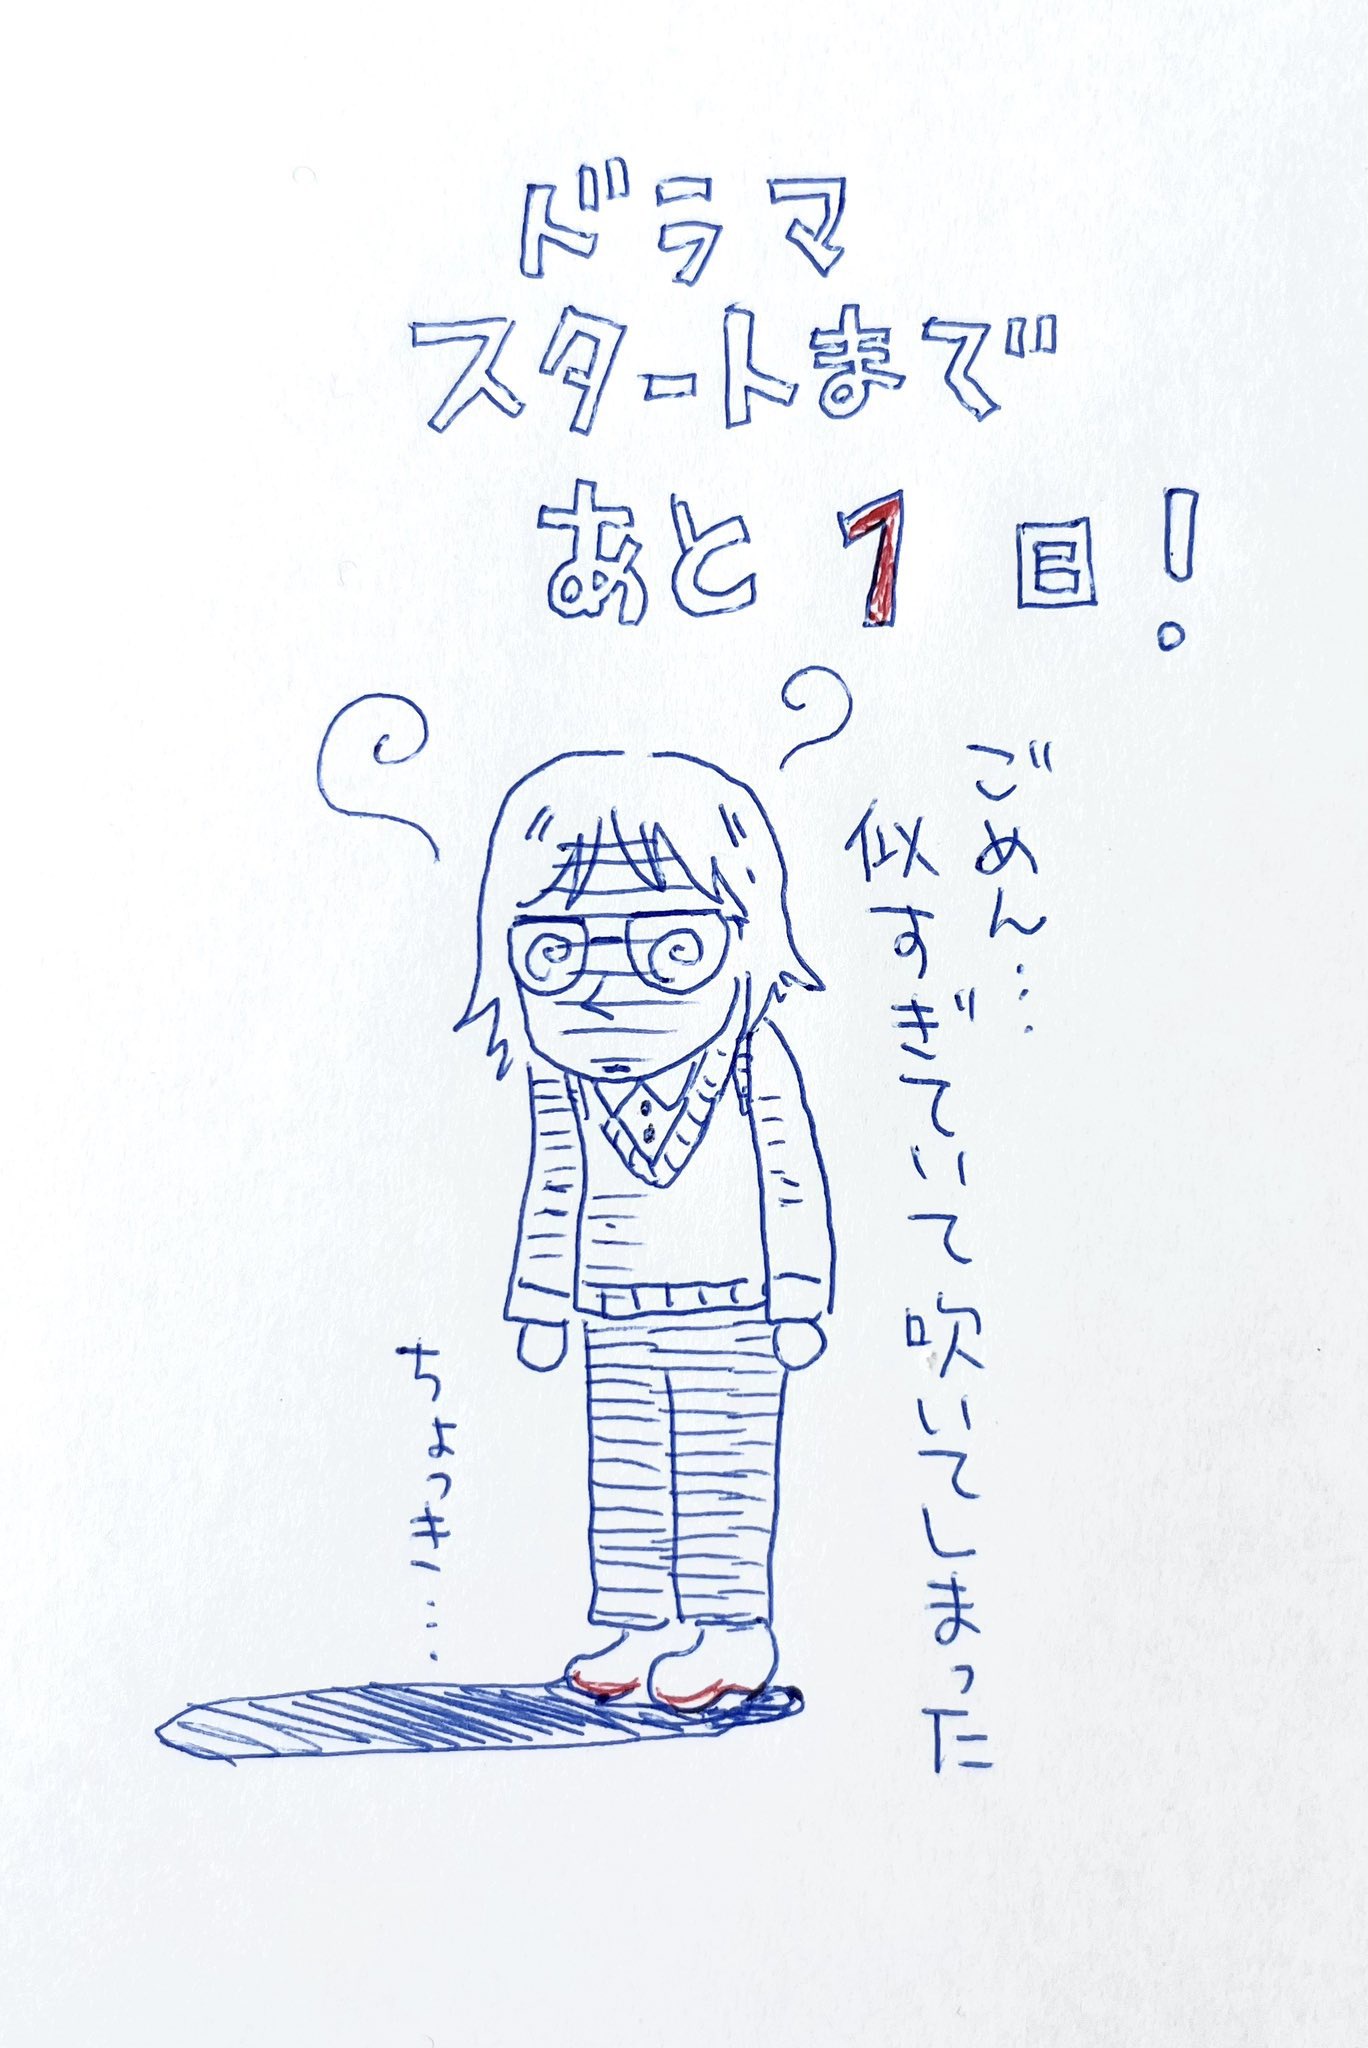 ドラマ
スタートまで
あと1日!
ごめん…
似すぎていて吹いてしまった
ちょっき…